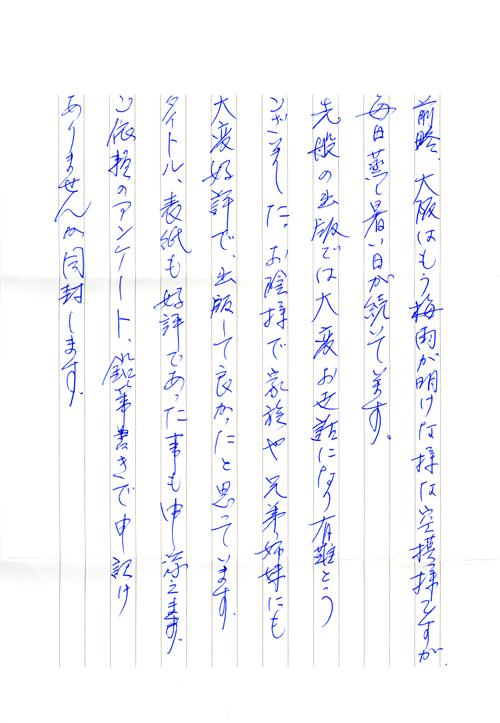 前略、大阪はもう梅雨が明けた様な空模様ですが、
毎日蒸し暑い日が続いています。
先般の出版では大変お世話になり有難とう
ございました。お陰様で家族や兄弟姉妹にも
大変好評で、出版して良かったと思っています。
タイトル、表紙も好評であった事も申し添えます。
ご依頼のアンケート、鉛筆書きで申し訳け
ありませんが同封します。